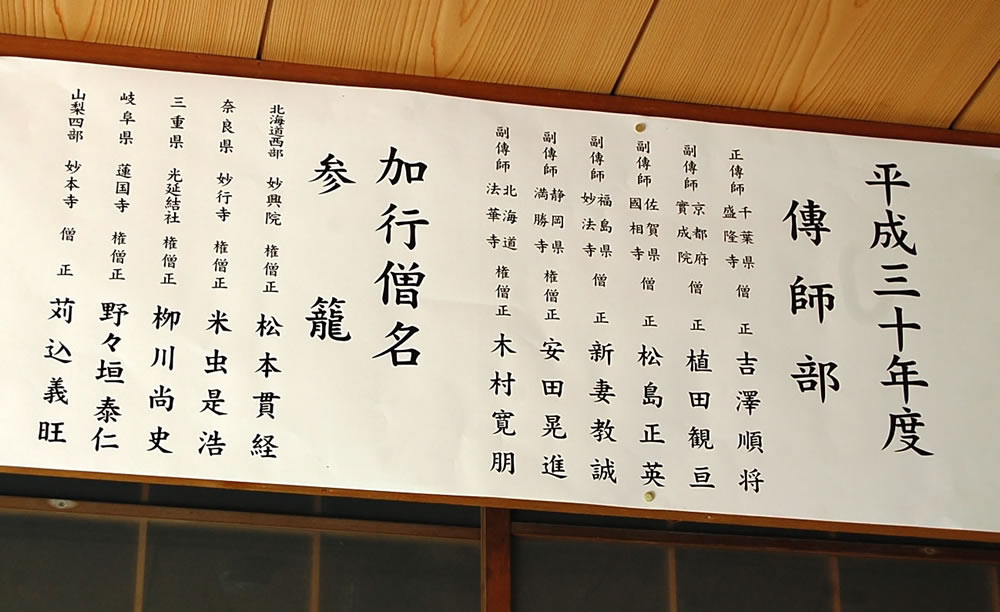 平成三十年度
傳師部
正傳師 千葉県 盛隆寺 僧正 吉澤順将
副傳師 京都府 實成院 僧正 植田観亘
副傳師 佐賀県 國相寺 僧正 松島正英
副傳師 福島県 妙法寺 僧正 新妻教誠
副傳師 静岡県 満勝寺 権僧正 安田晃進
副傳師 北海道 法華寺 権僧正 木村寛朋
加行僧名
参籠
北海道西部 妙興院 権僧正 松本貫経
奈良県 妙行寺 権僧正 米虫是浩
三重県 光延結社 権僧正 柳川尚史
岐阜県 蓮国寺 権僧正 野々垣泰仁
山梨四部 妙本寺 僧正 苅込義旺